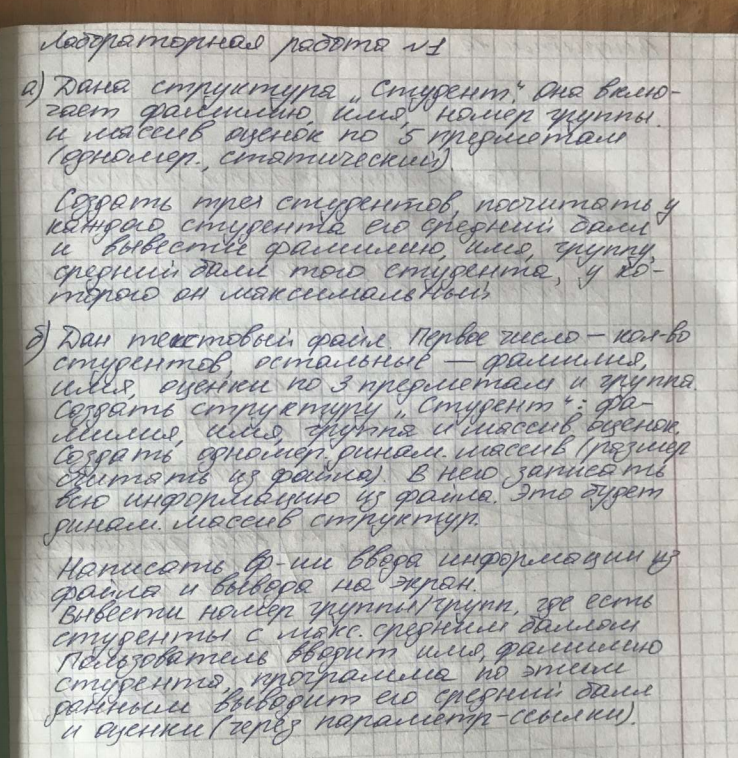 Лабораторная работа №1
а) Дана структура „Студент“. Она вклю-
чает фамилию, имя, номер группы
и массив оценок по 5 предметам
(одномер., статический).
Создать трех студентов, посчитать у
каждого студента его средний балл
и вывести фамилию, имя, группу,
средний балл того студента, у ко-
торого он максимальный.
б) Дан текстовый файл. Первое число — кол-во
студентов, остальные — фамилия,
имя, оценки по 3 предметам и группа.
Создать структуру „Студент“: фа-
милия, имя, группа и массив оценок.
Создать одномер. динам. массив (размер
считать из файла). В него записать
всю информацию из файла. Это будет
динам. массив структур.
Написать ф-ии ввода информации из
файла и вывода на экран.
Вывести номер группы/групп, где есть
студенты с макс. средним баллом
Пользователь вводит имя, фамилию
студента, программа по этим
данным выводит его средний балл
и оценки (через параметр-ссылки).